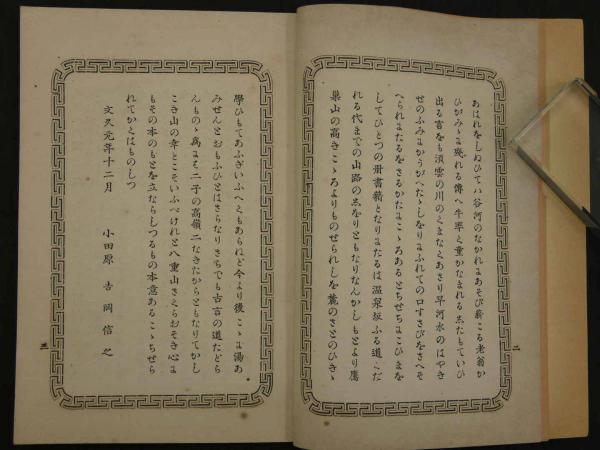 あはれをしぬひてハ谷河のなかれにあそび薪こる老翁か
ひがみゝに残れる傳へ牛牽く童かなまれるこたもていひ
出る言をも須雲の川のくまなくあさり早河水のはやき
せのふみにかうがへたゝしをりにふれての口すさびをさへそ
へられたるをさるかたにこゝろあるとちせちにこひまを
してひとつの册書籍となりたるは温泉坂ふる道くだ
れる代までの山路のしをりともなりなんかしもとより鷹
巣山の高きこゝろよりものせられしを麓のさとのひきゝ
二
學ひもてあふぎいふへくもあらねど今より後こゝに湯あ
みせんとおもふひとはさらなりさらでも古言の道たどら
んものゝ為にも二子の高嶺二なきたからともなりてかし
こき山の幸とこそいふべけれと八重山さくらおそき心に
もその本のもとを立ならしつるもの本意あるこゝちせら
れてかくはものしつ
文久元年十二月
小田原 吉岡信之
三